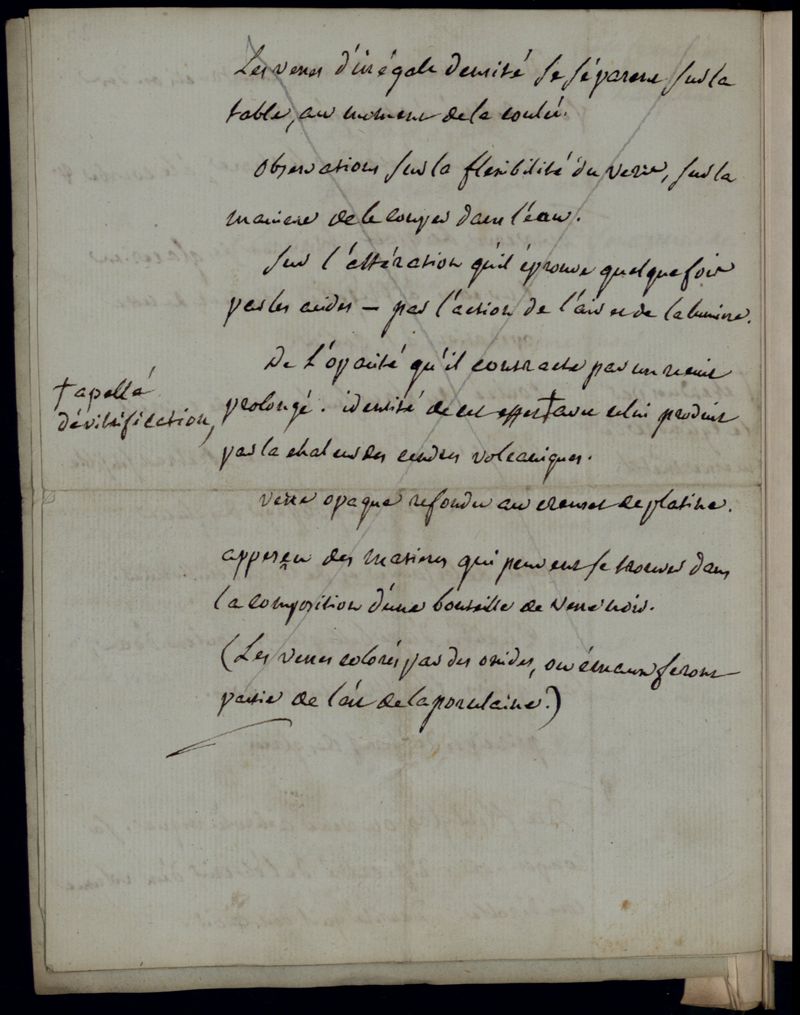 Les verres d'inégale densité se séparent sur la
table, au moment de la coulée.
Observations sur la flexibilité du verre, sur la
maniere de le couper dans l'eau.
Sur l'altération qu'il éprouve quelque fois
par les acides — par l'action de l'air et de la lumiere.
De L'opacité qu'il contracte par un recuit
prolongé. identité de cet effet † avec celui produit
† apellé
dévitrification,
par la chaleur des cendres volcaniques.
verre opaque refondu au creuset de platine.
apperçu des matieres qui peuvent se trouver dans
la composition d'une bouteille de verre noir.
(Les verres colorés par des oxides, ou émaux feront
partie de l'art de la porcelaine.)